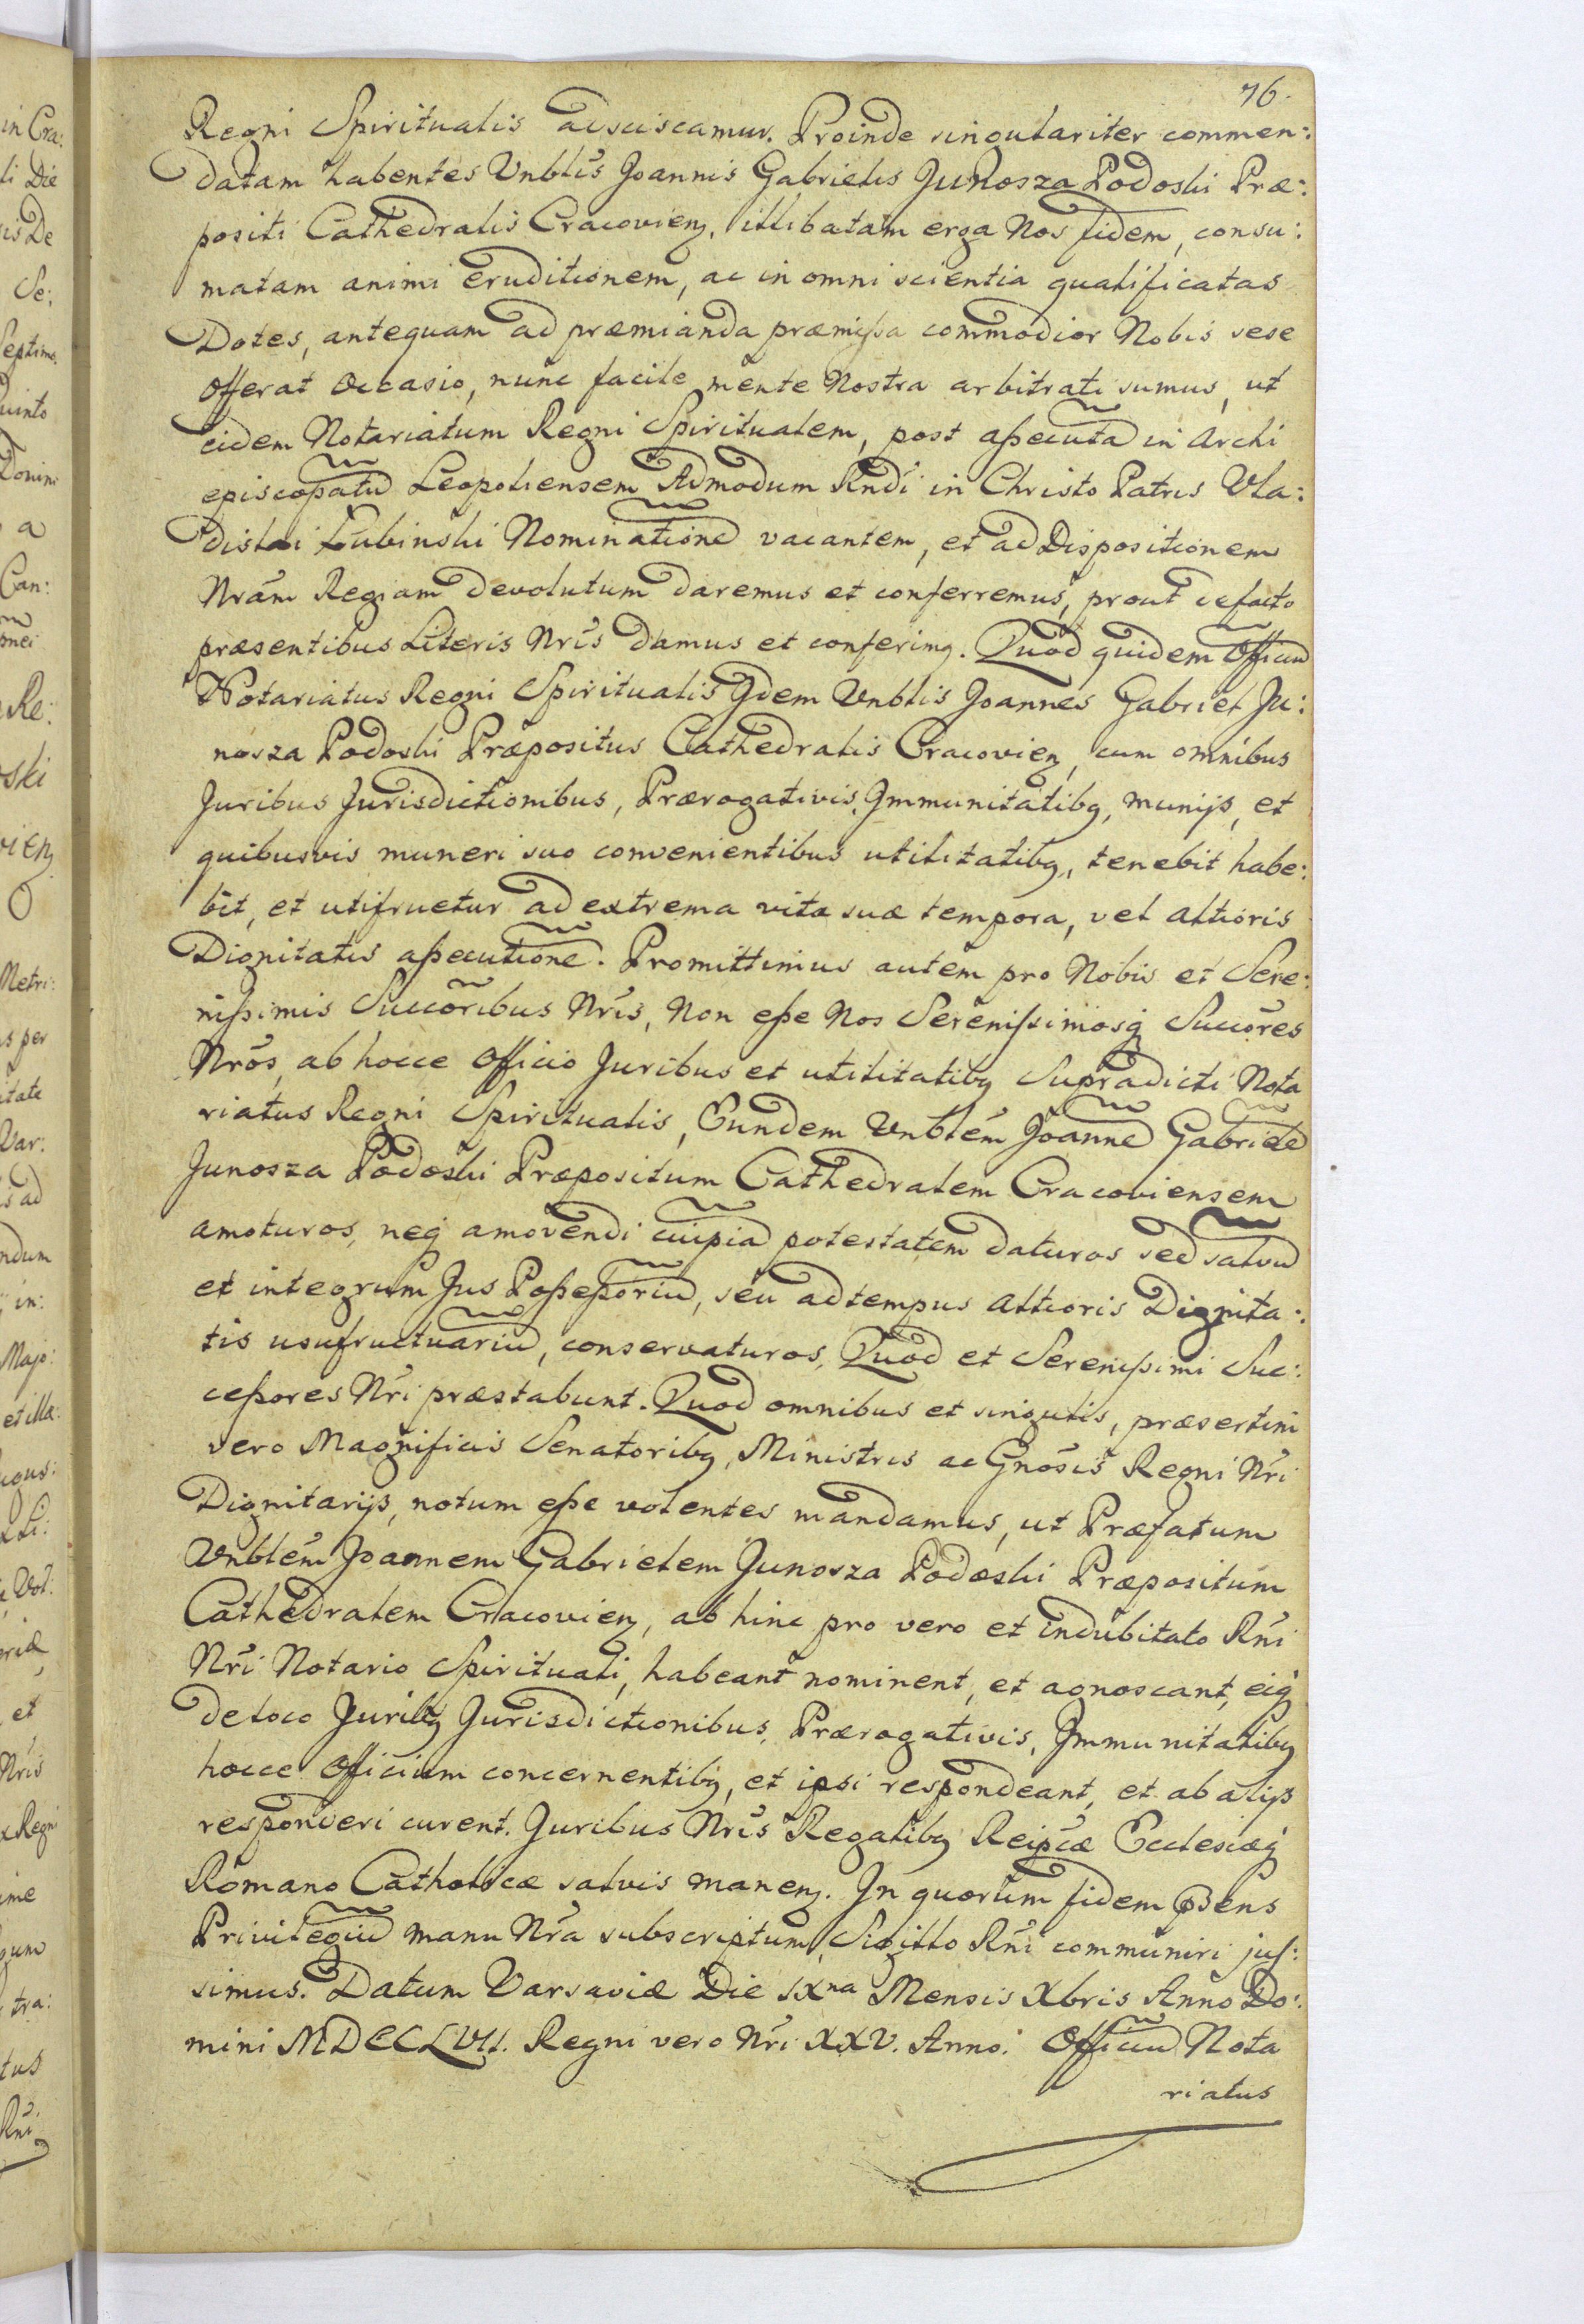 76.
Regni Spiritualis adsciscamus. Proinde singulariter commen:
datam habentes Vnblis̃ Joannis Gabrielis Junosza Podoski Præ:
positi Cathedralis Cracovieñ, illibatam erga Nos fidem, consu:
matam animi eruditionem, ac in omni scientia qualificatas
Dotes, antequam ad præmianda præmissa commodior Nobis sese
offerat occasio, nunc facile mente Nostra arbitrati sumus, ut
eidem Notariatum Regni Spiritualem, post assecutã in Archi
episcopatũ Leopoliensem Admodum Rndi in Christo Patris Vla:
dislai Łubinski Nominationẽ vacantem, et ad Dispositionem
Nram̃ Regiam devolutum daremus et conferremus, prout defacto
præsentibus Literis Nris̃ damus et conferimq. Quod quidem Officiũ
Notariatus Regni Spiritualis Idem Vnblis Joannes Gabriel Ju:
nosza Podoski Præpositus Cathedralis Cracovieñ, cum omnibus
Juribus Jurisdictionibus, Prærogativis, Immunitatibq, munijs, et
quibusvis muneri suo convenientibus utilitatibq, tenebit habe:
bit, et utifruetur ad extrema vitæ suæ tempora, vel altioris
Dignitatis assecutionẽ. Promittimus autem pro Nobis et Sere:
nissimis Succõribus Nris̃, Non esse Nos Serenissimosq̃ Succõres
Nrõs, ab hocce Officio Juribus et utilitatibq Supradicti Nota
riatus Regni Spiritualis, Eundem Vnblẽm Joannẽ Gabrielẽ
Junosza Podoski Præpositum Cathedralem Cracoviensem
amoturos, neq̃ amovendi cuipiã potestatem daturos sed salvũ
et integrum Jus Possessoriũ, seu ad tempus altioris Dignita:
tis usufructuariũ, conservaturos, Quod et Serenissimi Suc:
cessores Nri præstabunt. Quod omnibus et singulis, præsertim
vero Magnificis Senatoribq, Ministris ac Gnosis̃ Regni Nri
Dignitarijs, notum esse volentes mandamus, ut Præfatum
Vnblẽm Joannem Gabrielem Junosza Podoski Præpositum
Cathedralem Cracovieñ, ab hinc pro vero et indubitato Rni
Nri Notario Spirituali, habeant nominent, et agnoscant, eiq̃
de loco Juribq Jurisdictionibus, Prærogativis, Immunitatibq
hocce Officium concernentibq, et ipsi respondeant, et ab alijs
responderi curent. Juribus Nris̃ Regalibq Reipcæ Ecclesiæq̃
Romano Catholicæ salvis maneñ. In quorum fidem præsens
Privilegiũ manu Nra subscriptum, Sigillo Rni communiri jus:
simus. Datum Varsaviæ Die IXna Mensis Xbris Anno Do:
mini MDCCLVII. Regni vero Nri XXV. Anno. Officiũ Nota
riatus